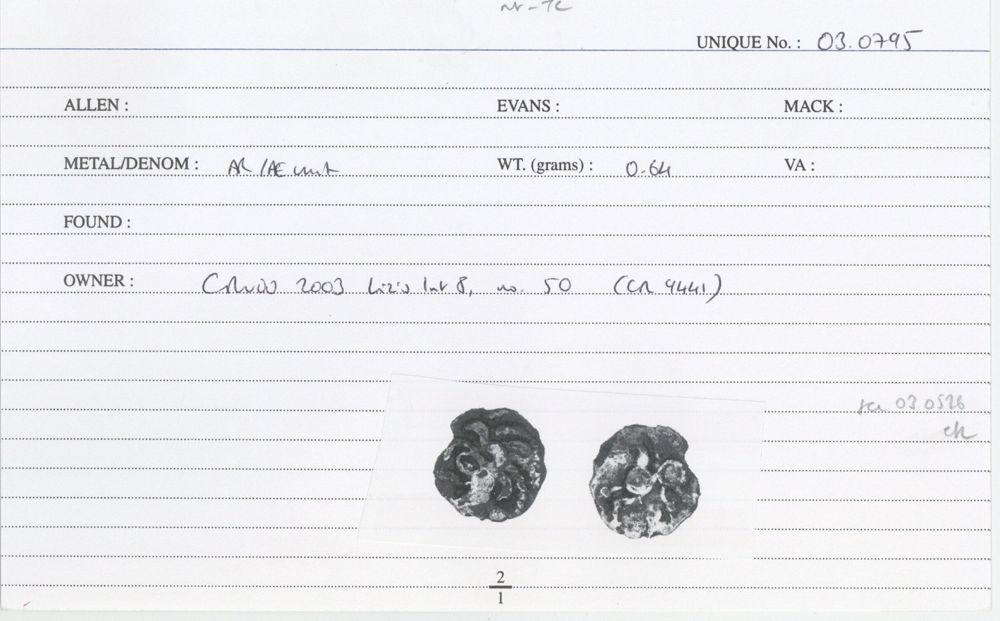 UNIQUE No. : 03.0795
ALLEN : EVANS : MACK :
METAL/DENOM : AR/AE unit WT. (grams) : 0.64 VA :
FOUND :
OWNER : 2003 Liz's List 8, no. 50 (CR 9441)
03 0526
ch
2
1